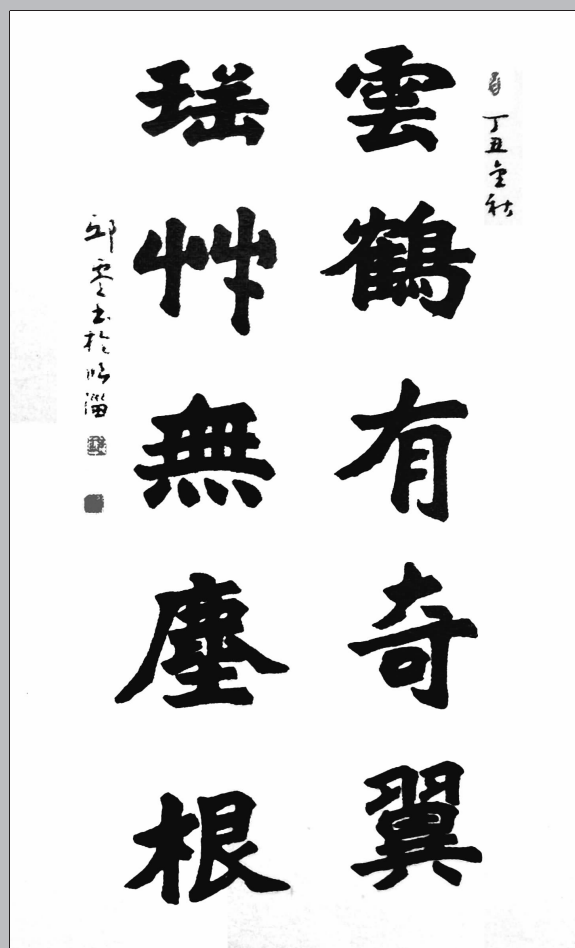 丁丑金秋
雲鶴有奇翼
瑶艸無塵根
邱零书於临淄